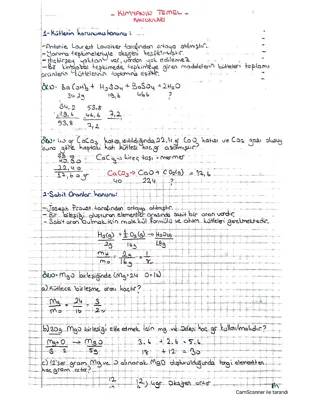 - KİMYANIN TEMEL -
KANUNLARI
1- Kütlenin korunumu kanunu:
- Antonie Laurent Lavoiser tarafından ortaya atılmıştır.
- Yanma tepkimeleriyle desteklenmiştir.
- Hiçbir şey yoktan var, vardan yok edilemez.
- Bir kimyasal tepkimede tepkimeye giren maddelerin kütleleri toplamı
ürünlerin kütlelerinin toplamına eşittir.
Ba(OH)2 + H2SO4 → BaSO4 + 2H2O
34,2g 19,6 46,6 ?
34,2 53,8
19,6 46,6 7,2
53,8 7,2
CaCO3 katısı ısıtıldığında 22,4 gr CaO katısı ve CO2 gazı
buna göre
CaCO3 → kireç taşı - mermer
CaCO3 → CaO + CO2(g)
22,4 ?
2- Sabit Oranlar kanunu:
- Joseph Proust tarafından ortaya atılmıştır.
- Bir bileşiği oluşturan elementler arasında sabit bir oran vardır.
- Sabit oranı bulmak için molekül formülü ve atom kütleleri gerekmektedir.
H2(g) + 1/2 O2(g) → H2O(g)
2g 16g 18g
mH/mO = 2g/16g = 1/8
MgO bileşiğinde (Mg=24 O=16)
a) Kütlece birleşme oranı kaçtır?
Mg/mO = 24/16 = 3/2
b) 30gr MgO bileşiği elde etmek için mg ve O'den kaç gr kullanılmalıdır?
Mg + O → MgO 3.6 + 2.6 = 5.6
3 2 5g 18 + 12 = 30
c) 12'şer gram Mg ve O alınarak MgO oluşturulduğunda hangi elementten
kaç gram artar?
4gr Oksijen artar
CamScanner ile tarandı